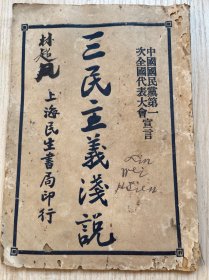 中國國民黨第一
次全國代表大會宣言
三民主義淺說
上海民生書局印行
林
Lin
Wei